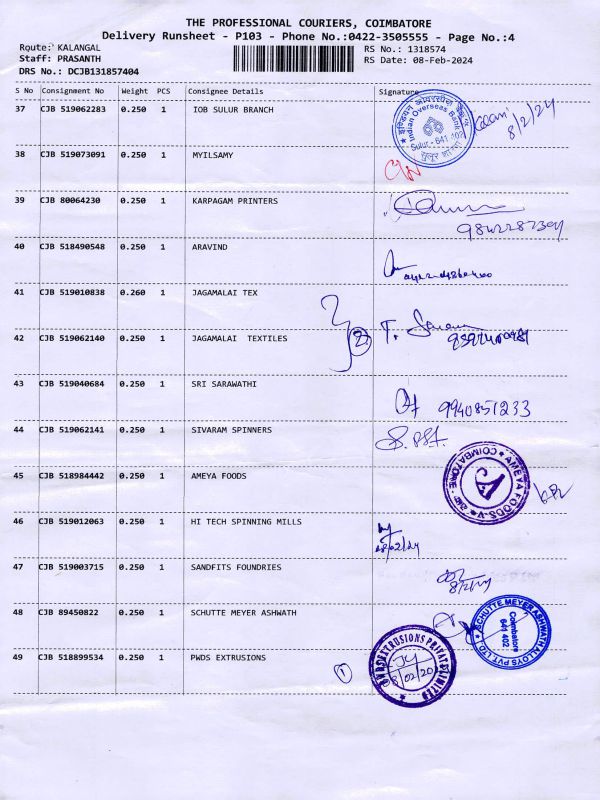 THE PROFESSIONAL COURIERS, COIMBATORE
Delivery Runsheet - P103 - Phone No.:0422-3505555 - Page No.:4
Route: KALANGAL
RS No.: 1318574
Staff: PRASANTH
RS Date: 08-Feb-2024
DRS No.: DCJB131857404
S No Consignment No Weight PCS Consignee Details Signature
37 CJB 519062283 0.250 1 IOB SULUR BRANCH
इण्डियन ओवरसीज़ बैंक
Indian Overseas Bank
Sulur - 641 402
8/2/24
38 CJB 519073091 0.250 1 MYILSAMY
39 CJB 80064230 0.250 1 KARPAGAM PRINTERS
40 CJB 518490548 0.250 1 ARAVIND
41 CJB 519010838 0.260 1 JAGAMALAI TEX
42 CJB 519062140 0.250 1 JAGAMALAI TEXTILES 2
43 CJB 519040684 0.250 1 SRI SARAWATHI 9940851233
44 CJB 519062141 0.250 1 SIVARAM SPINNERS
45 CJB 518984442 0.250 1 AMEYA FOODS
AMEYA FOODS
COIMBATORE
46 CJB 519012063 0.250 1 HI TECH SPINNING MILLS
08/02/24
47 CJB 519003715 0.250 1 SANDFITS FOUNDRIES
48 CJB 89450822 0.250 1 SCHUTTE MEYER ASHWATH
SCHUTTE MEYER ASHWATH ALLOYS PVT LTD
Coimbatore
641 402
49 CJB 518899534 0.250 1 PWDS EXTRUSIONS 1
PWDS EXTRUSIONS PRIVATE LIMITED